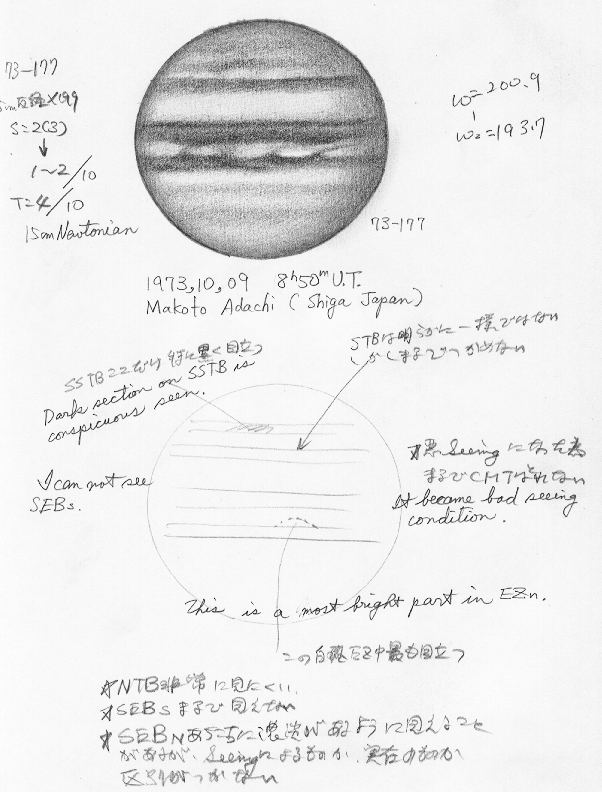 73-177
5cm反経×199
S=2(3)
↓
1~2/10
T=4/10
15cm Newtonian
ω1=200.9
ω2=193.7
73-177
1973,10,09 8h50m U.T.
Makoto Adachi (Shiga Japan)
SSTBここだけ特に黒く目立つ
Dark section on SSTB is
conspicuous seen.
STBは明らかに一様ではない
しかしまるでつかめない
I can not see
SEBs.
悪Seeingになった為
まるでCMTはとれない
It became bad seeing
condition.
This is a most bright part in EZn.
この白斑EZ中最も目立つ
☆NTB非常に見にくい.
☆SEBsまるで見えない
☆SEBNあちこちに濃淡があるように見えること
があるが、Seeingによるものか、実在のものか
区別がつかない